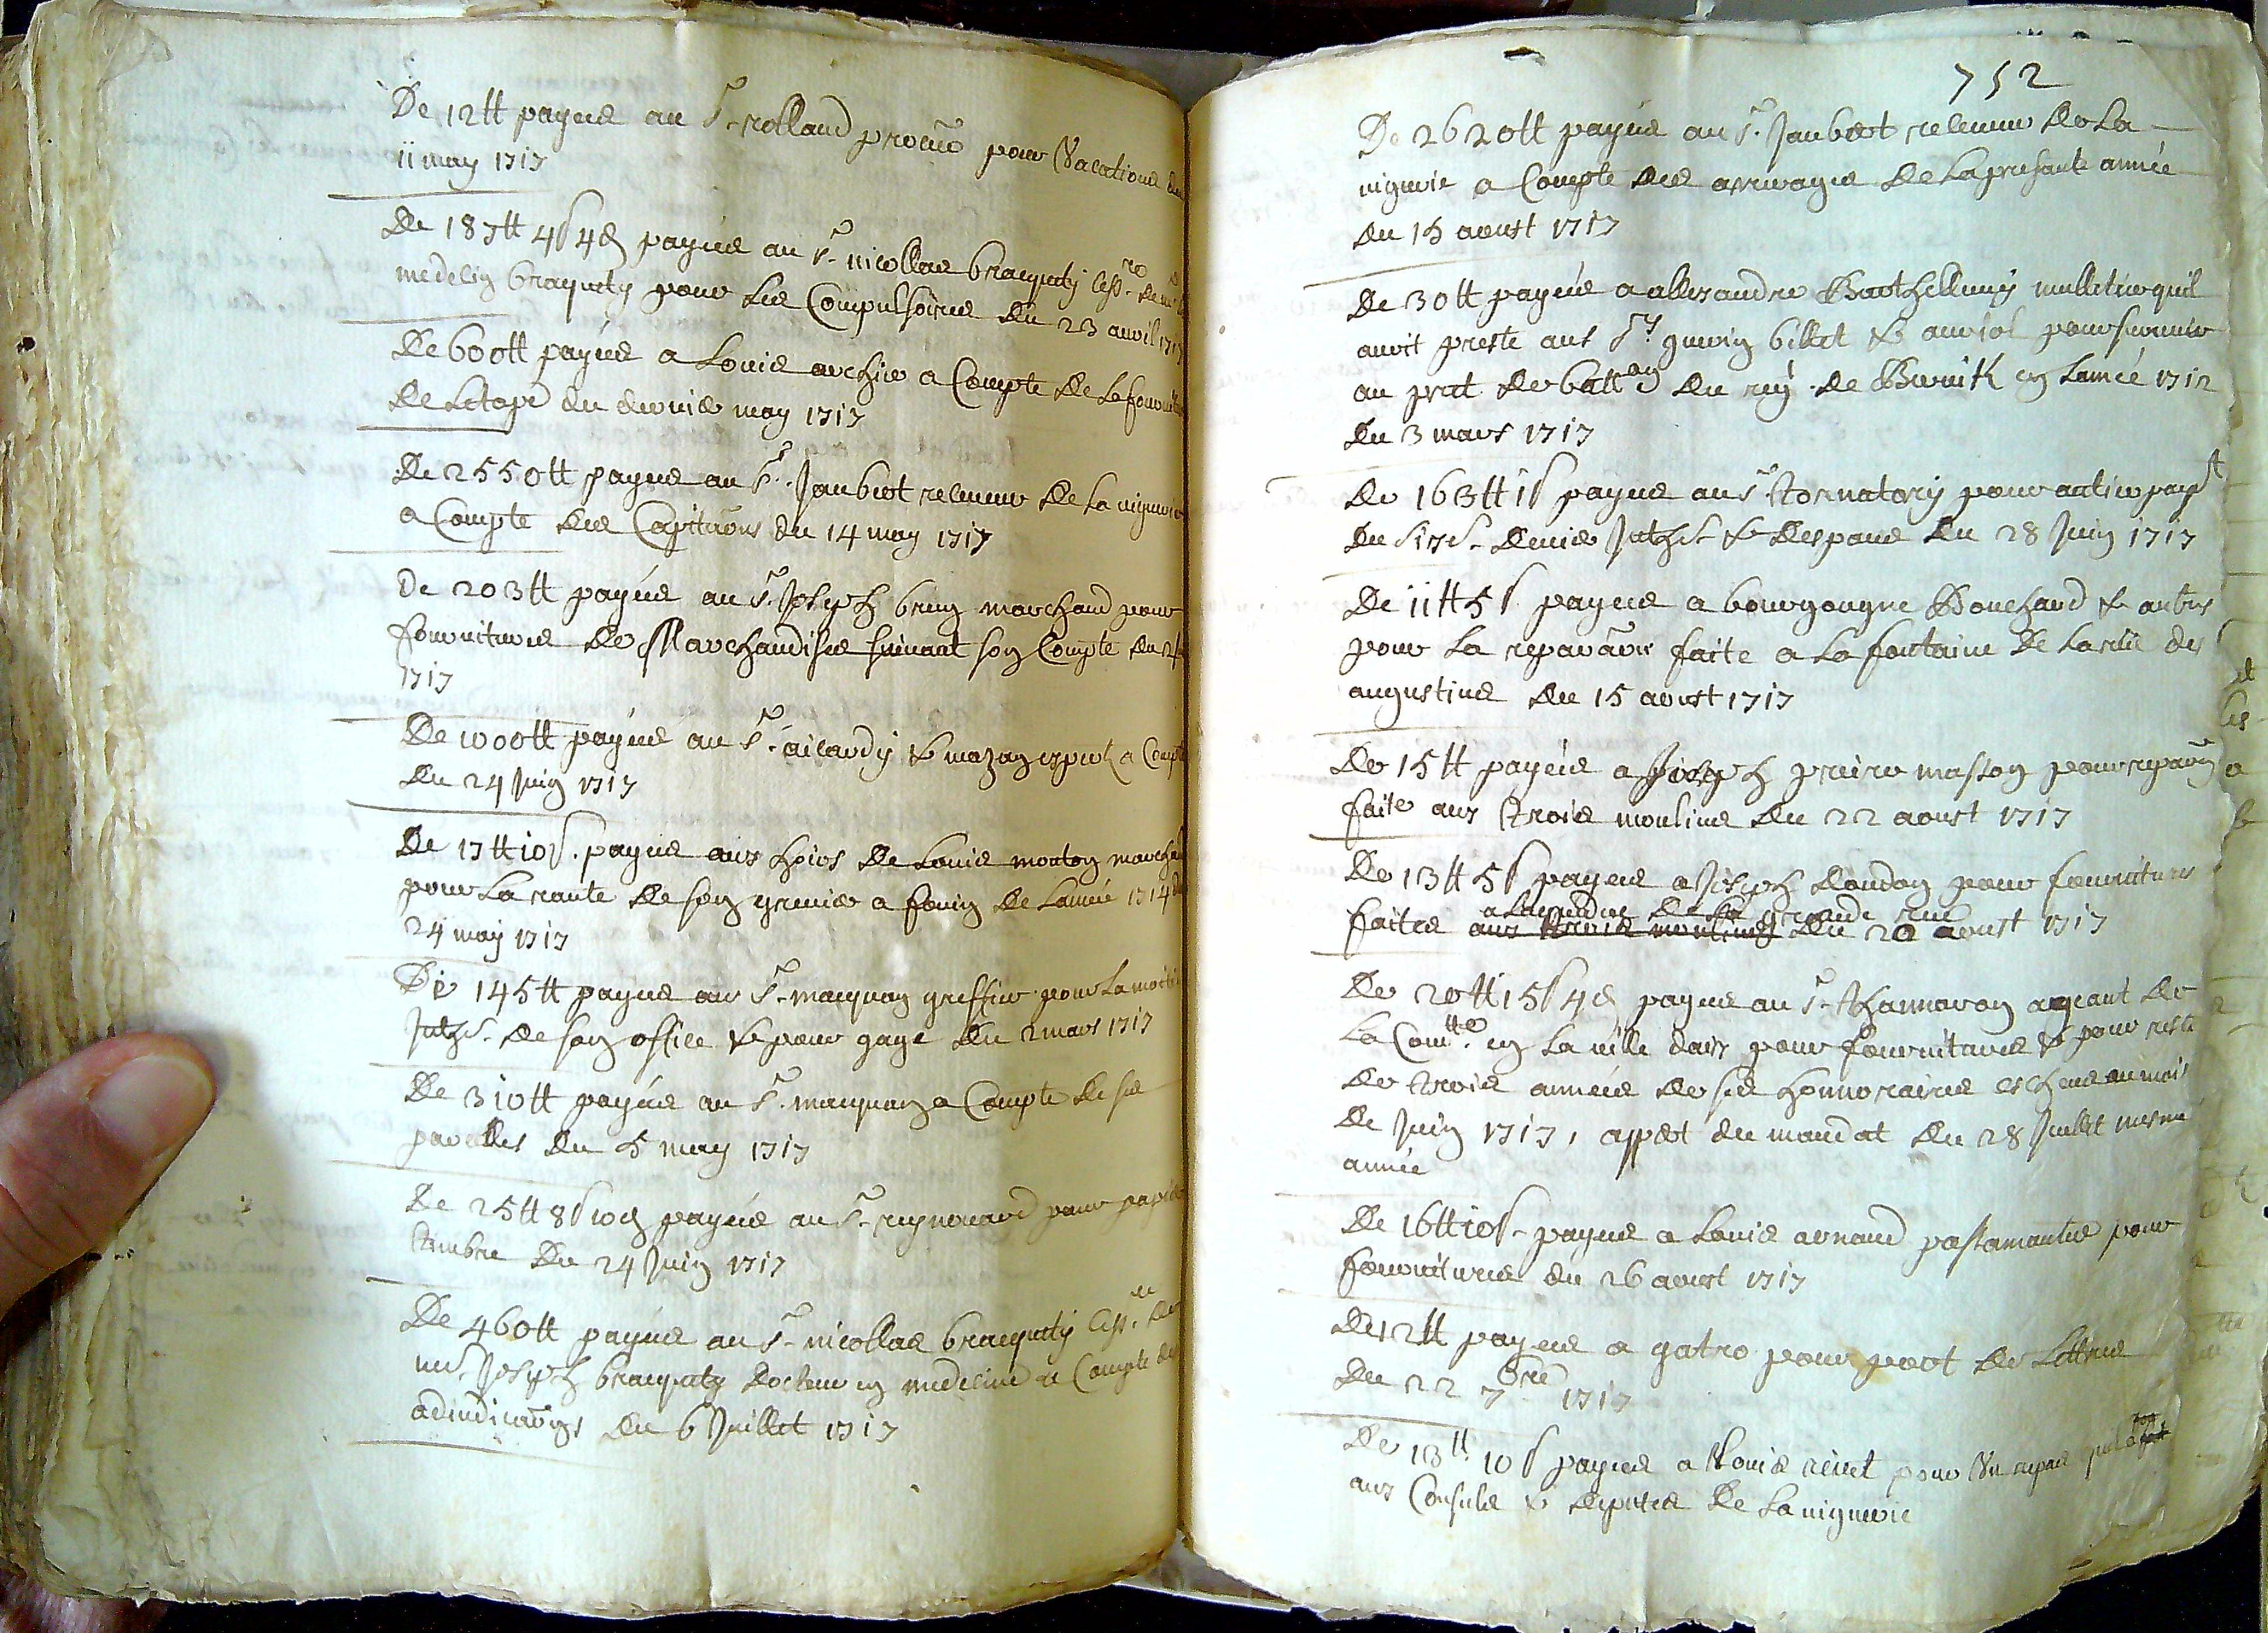 De 12tt payees au Sr. rolland procur pour Vacations du
11 may 1717
De 187tt 4s 4d payées au Sr. nicollas bracquety cess.re de me
medelin braquety pour les Compulsoires du 23 avril 1717
De 600tt payées a Louis archier a Compte de la fournitu
De Letape du dernier may 1717
De 2550tt payees au Sr. Jaubert receveur De la viguerie
a Compte des Capitaõns du 14 may 1717
De 203tt payées au Sr. Joseph brun marchand pour
fournitures de Marchandises suivant son Compte du
1717
De 1000tt payées au Sr. ailaudy & mazan a Compte
Du 24 Juin 1717
De 17tt 10s. payees aux hoirs De Louis mouton marchand
pour La rante De son grenier a foin De Lannée 1714 du
24 may 1717
De 145tt payees au Sr. maquan greffier pour La moitié
Jnthz. De son office & pour gage Du 2 mars 1717
De 310tt payées au Sr. maquan a Compte De ses
parcelles Du 5 may 1717
De 25tt 8s 10d payées au Sr. reynouard pour papier
timbre Du 24 Juin 1717
De 460tt payées au Sr. nicollas bracquety Cess.re De
me Joseph bracquety Docteur en medecine a Compte des
adiudicaõns Du 6 Juillet 1717
752
De 2620tt payées au Sr. Jaubert receveur De La
viguerie a Compte des arrerages De La presante année
Du 15 aoust 1717
De 30tt payées a allexandre Barthellemy mulletier quil
avoit preste aux Srs. guerin billet & auriol pour survenir
au pret de batt.on du rey. de Barwik en Lannée 1712
Du 3 mars 1717
De 163tt 1s payees au Sr. tornatory pour antier payt
Du Denis Jnthz. & Despans Du 28 Juin 1717
De 11tt 5s. payees a bourgougne Bouchard & autres
pour La reparaõn faite a La fontaine De La rüe des
augustins Du 15 aoust 1717
De 15tt payées a Joseph preire masson pour reparaõn
faite aux trois moulins Du 22 aoust 1717
De 13tt 5s payees a Joseph Dandon pour fournitures
a De La grande rue
faites aux trois moulins Du 20 aoust 1717
De 20tt 15s 4d payees au Sr. thamaron ageant de
La Com.tté en La ville daix pour fournitures & pour reste
De trois années de ses honnoraires escheus au mois
De Juin 1717, appert du mandat Du 28 Juillet mesme
année
De 16tt 10s. payees a Louis arnaud passamantier pour
fournitures du 26 aoust 1717
De 12tt payees a gatro pour port De Lettres
Du 22 7bre 1717
De 113tt 10s payees a Louis ricut pour Un repas quil a
aux Consuls & deputes De La viguerie